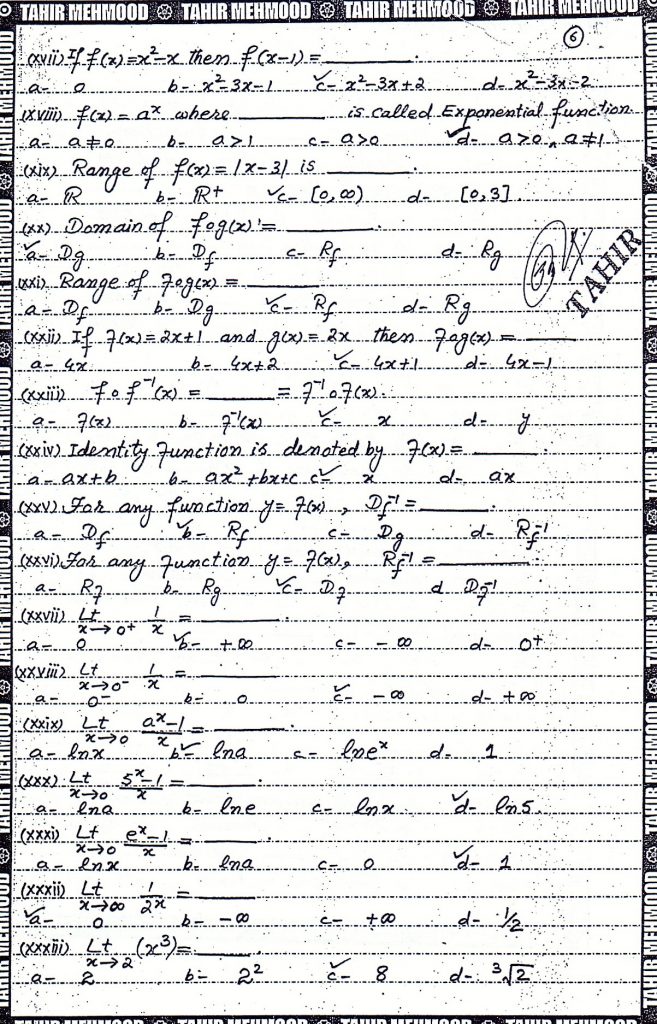 TAHIR MEHMOOD TAHIR MEHMOOD TAHIR MEHMOOD TAHIR MEHMOOD
6
(xvii) If f(x) = x²-x then f(x-1) = ______.
a- 0 b- x²-3x-1 ✓c- x²-3x+2 d- x²-3x-2
(xviii) f(x) = aˣ where ______ is called Exponential function
a- a≠0 b- a>1 c- a>0 ✓d- a>0 ∧ a≠1
(xix) Range of f(x) = |x-3| is ______.
a- R b- R⁺ ✓c- [0,∞) d- [0,3]
(xx) Domain of fog(x) = ______.
✓a- Dg b- Df c- Rf d- Rg
TAHIR
(xxi) Range of fog(x) = ______.
a- Df b- Dg ✓c- Rf d- Rg
(xxii) If f(x) = 2x+1 and g(x) = 2x then fog(x) = ______
a- 4x b- 4x+2 ✓c- 4x+1 d- 4x-1
(xxiii) f o f⁻¹(x) = ______ = f⁻¹ o f(x).
a- f(x) b- f⁻¹(x) ✓c- x d- y
(xxiv) Identity function is denoted by f(x) = ______
a- ax+b b- ax²+bx+c c✓ x d- ax
(xxv) For any function y = f(x), Df⁻¹ = ______.
a- Df ✓b- Rf c- Dg d- Rf⁻¹
(xxvi) For any function y = f(x), Rf⁻¹ = ______.
a- Rf b- Rg ✓c- Df d Df⁻¹
(xxvii) Lt x→0+ 1/x = ______.
a- 0 ✓b- +∞ c- -∞ d- 0+
(xxviii) Lt x→0- 1/x = ______
a- 0- b- 0 ✓c- -∞ d- +∞
(xxix) Lt x→0 aˣ-1/x = ______.
a- lnx b✓ lna c- lneˣ d- 1
(xxx) Lt x→0 5ˣ-1/x = ______.
a- lna b- lne c- lnx ✓d- ln5.
(xxxi) Lt x→0 eˣ-1/x = ______
a- lnx b- lna c- 0 ✓d- 1
(xxxii) Lt x→∞ 1/2x = ______
✓a- 0 b- -∞ c- +∞ d- 1/2
(xxxiii) Lt x→2 (x³) = ______
a- 2 b- 2² ✓c- 8 d- ³√2